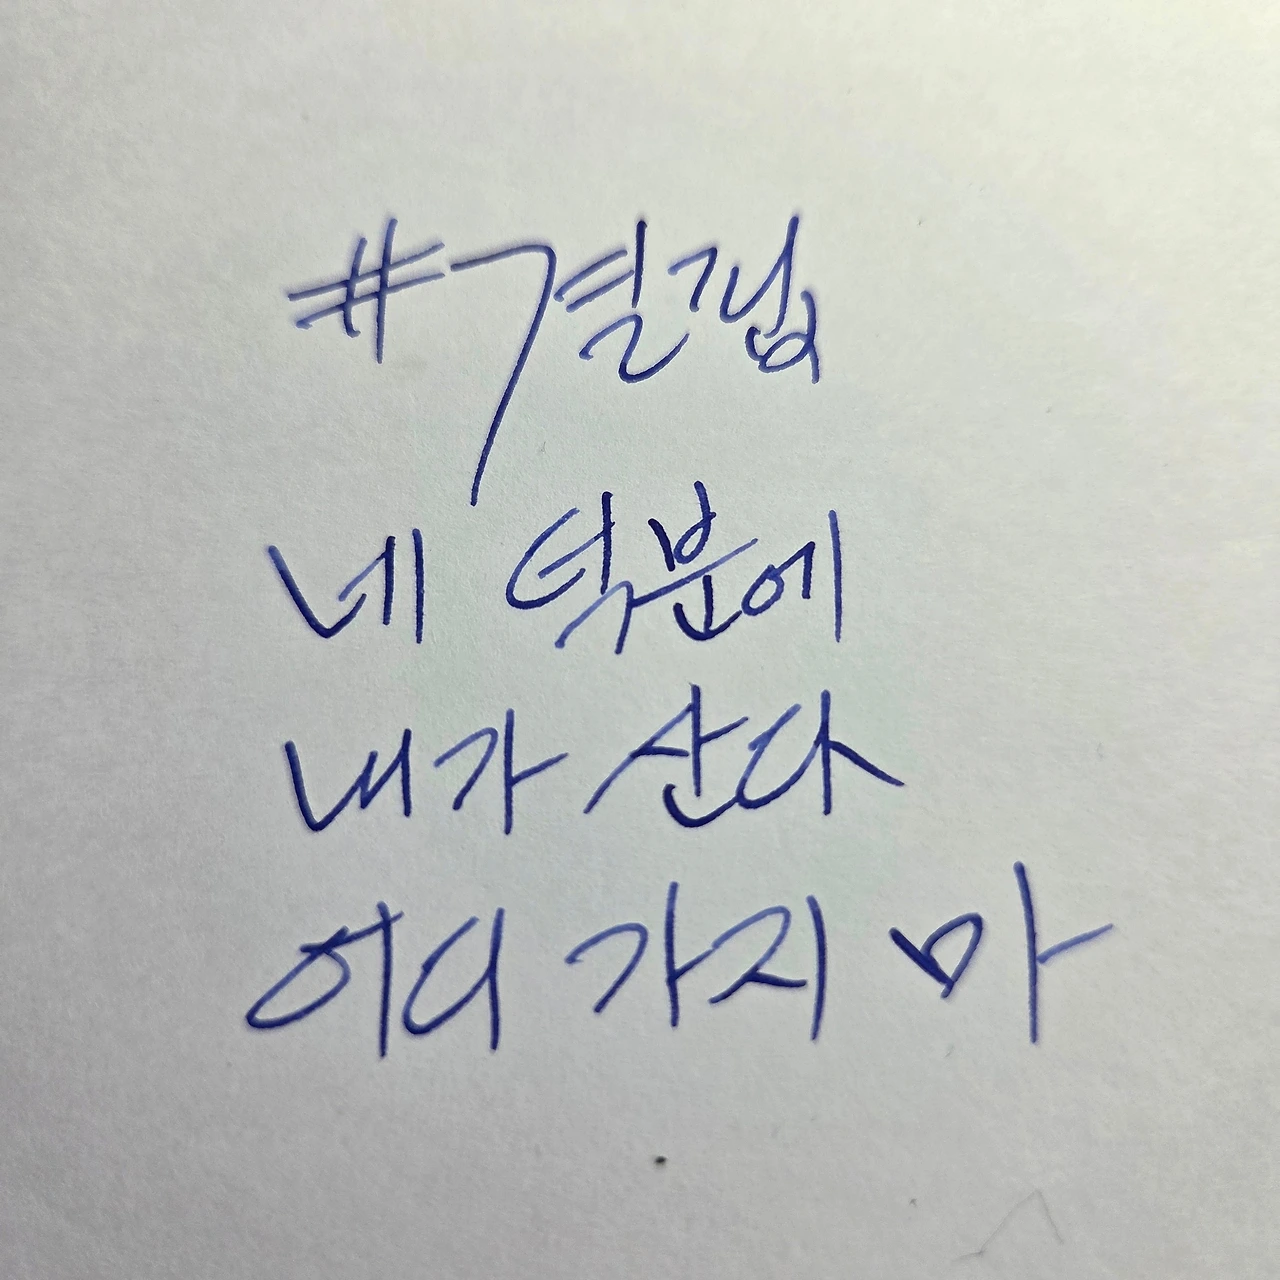 네 덕분에
내가 산다
어디 가지 마